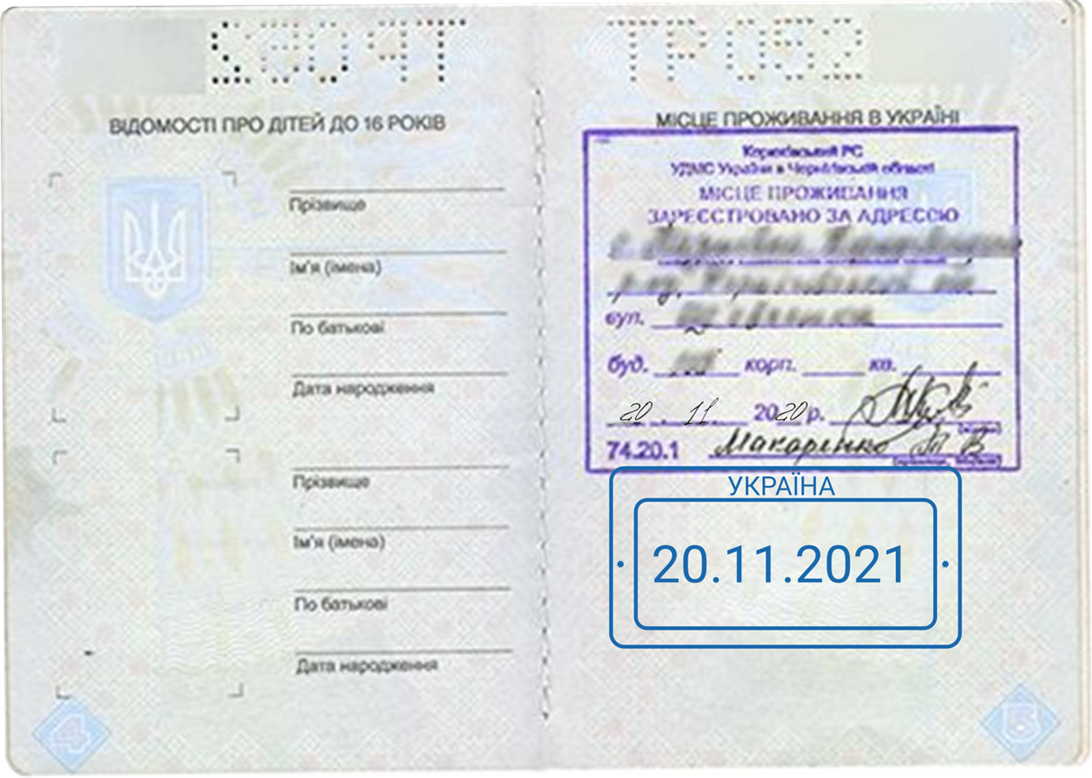 ТР 052
ВІДОМОСТІ ПРО ДІТЕЙ ДО 16 РОКІВ
Прізвище
Ім'я (імена)
По батькові
Дата народження
Прізвище
Ім'я (імена)
По батькові
Дата народження
4
МІСЦЕ ПРОЖИВАННЯ В УКРАЇНІ
РС
УДМС України в Чернігівській області
МІСЦЕ ПРОЖИВАННЯ
ЗАРЕЄСТРОВАНО ЗА АДРЕСОЮ
вул.
буд. корп. кв.
20 . 11 2020 р.
74.20.1 Макаренко
УКРАЇНА
20.11.2021
5